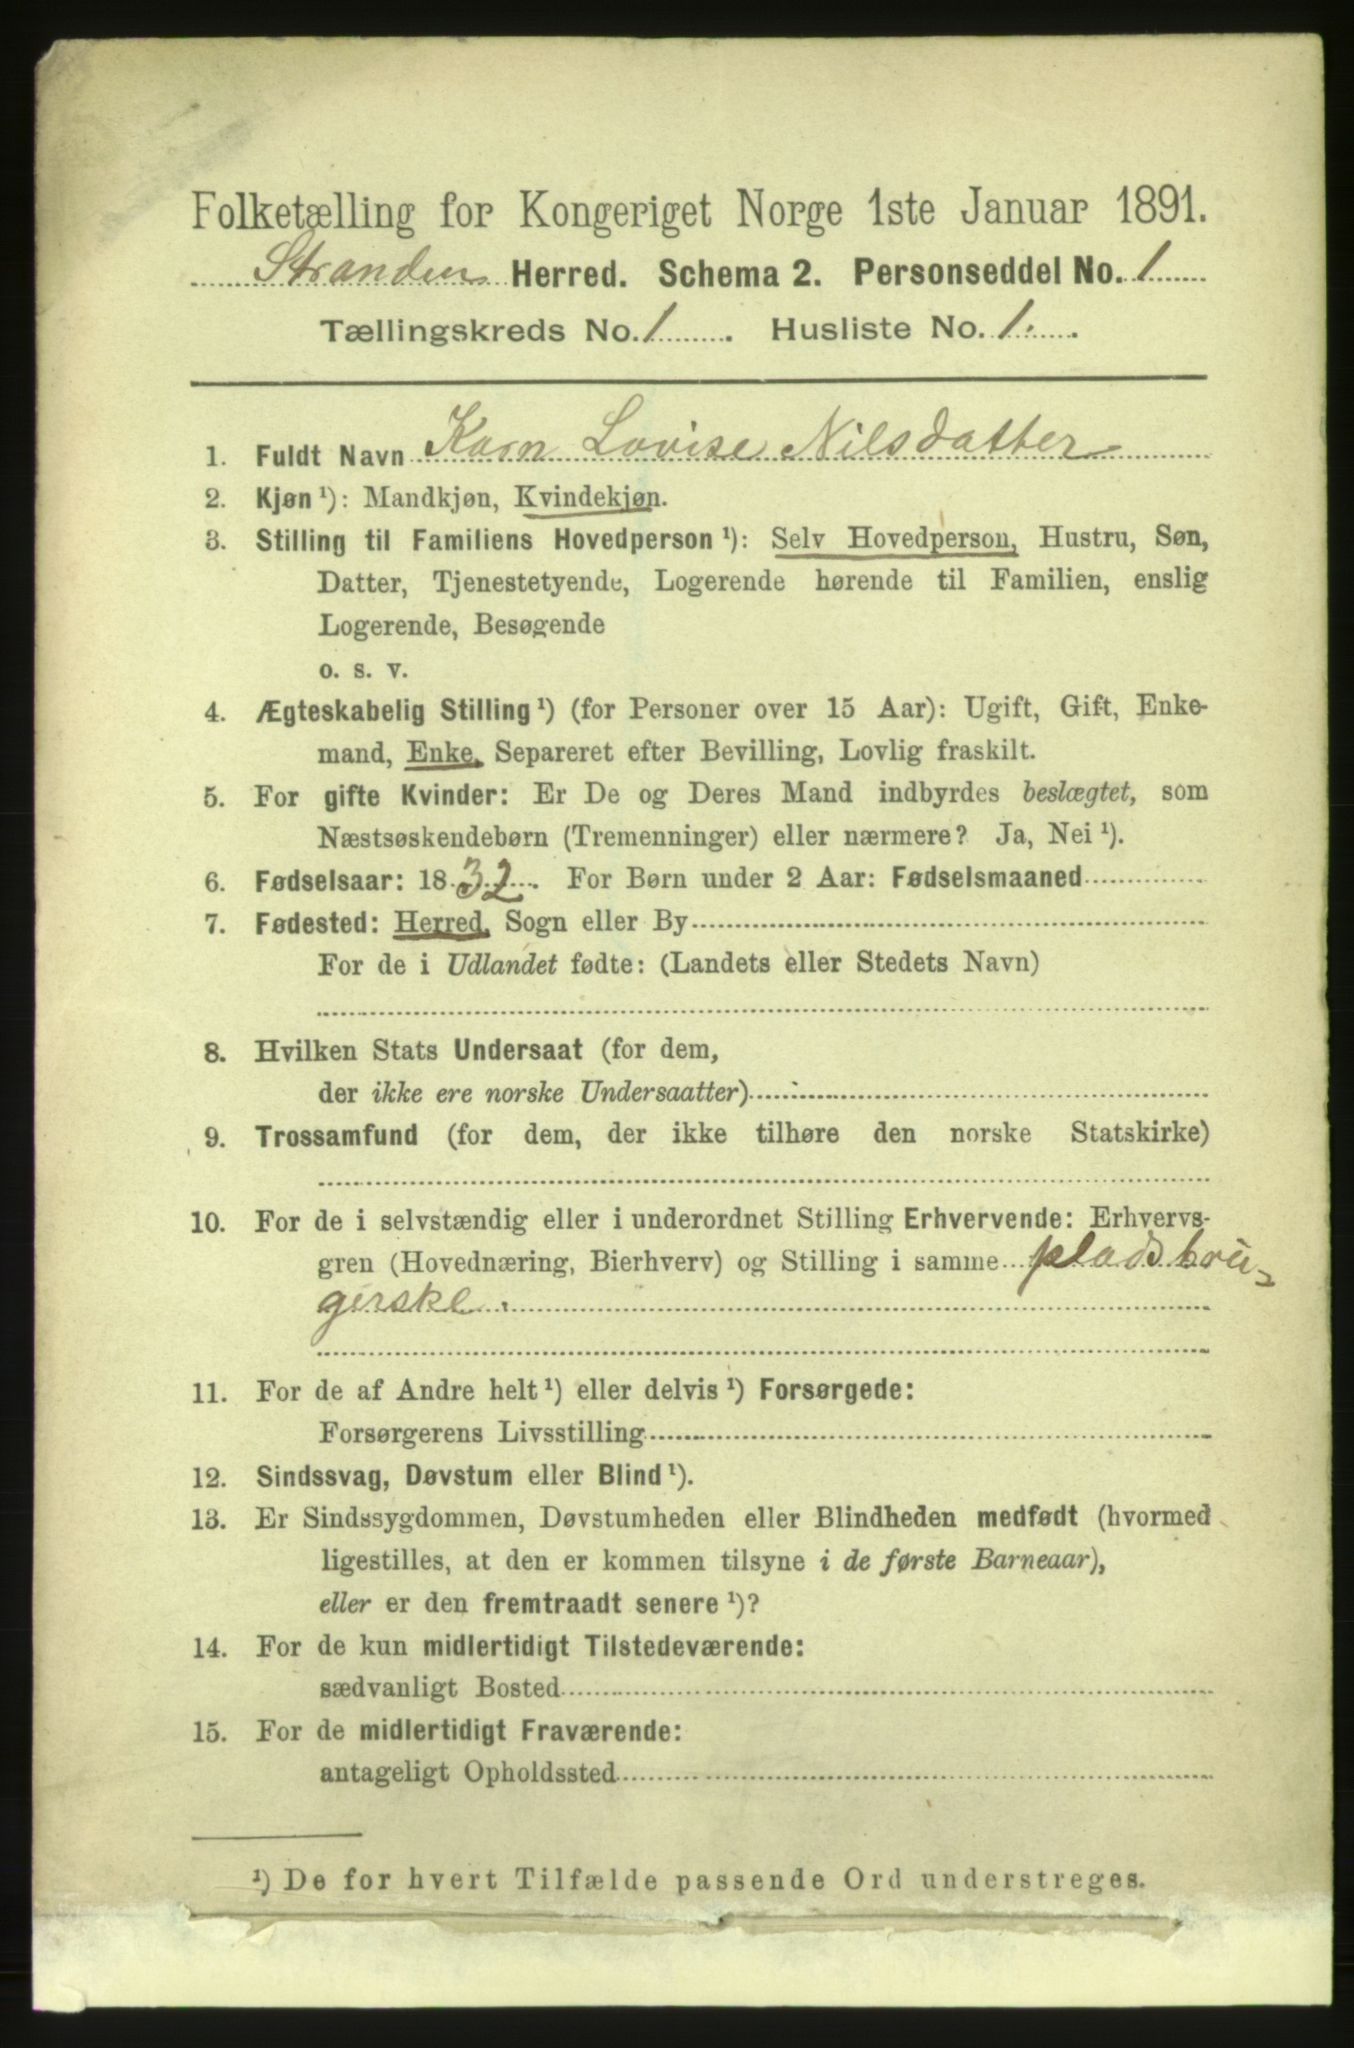 Folketælling for Kongeriget Norge 1ste Januar 1891.
Stranden Herred. Schema 2. Personseddel No. 1
Tællingskreds No. 1. Husliste No. 1.
1. Fuldt Navn Karn Lovise Nilsdatter
2. Kjøn ¹): Mandkjøn, Kvindekjøn.
3. Stilling til Familiens Hovedperson ¹): Selv Hovedperson, Hustru, Søn,
Datter, Tjenestetyende, Logerende hørende til Familien, enslig
Logerende, Besøgende
o. s. v.
4. Ægteskabelig Stilling ¹) (for Personer over 15 Aar): Ugift, Gift, Enke-
mand, Enke, Separeret efter Bevilling, Lovlig fraskilt.
5. For gifte Kvinder: Er De og Deres Mand indbyrdes beslægtet, som
Næstsøskendebørn (Tremenninger) eller nærmere? Ja, Nei ¹).
6. Fødselsaar: 1832. For Børn under 2 Aar: Fødselsmaaned
7. Fødested: Herred, Sogn eller By
For de i Udlandet fødte: (Landets eller Stedets Navn)
8. Hvilken Stats Undersaat (for dem,
der ikke ere norske Undersaatter)
9. Trossamfund (for dem, der ikke tilhøre den norske Statskirke)
10. For de i selvstændig eller i underordnet Stilling Erhvervende: Erhvervs-
gren (Hovednæring, Bierhverv) og Stilling i samme pladsbrü-
gerske.
11. For de af Andre helt ¹) eller delvis ¹) Forsørgede:
Forsørgerens Livsstilling
12. Sindssvag, Døvstum eller Blind ¹).
13. Er Sindssygdommen, Døvstumheden eller Blindheden medfødt (hvormed
ligestilles, at den er kommen tilsyne i de første Barneaar),
eller er den fremtraadt senere ¹)?
14. For de kun midlertidigt Tilstedeværende:
sædvanligt Bosted
15. For de midlertidigt Fraværende:
antageligt Opholdssted
¹) De for hvert Tilfælde passende Ord understreges.